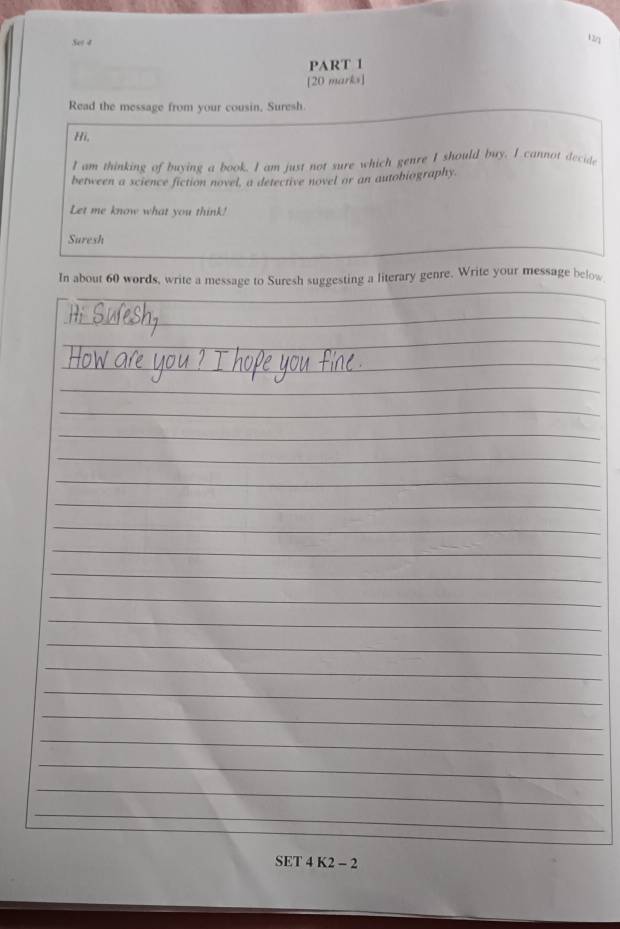 Set 4
PART 1
[20 marks]
Read the message from your cousin, Suresh.
Hi,
I am thinking of buying a book. I am just not sure which genre I should buy. I cannot decide
between a science fiction novel, a detective novel or an autobiography.
Let me know what you think!
Suresh
In about 60 words, write a message to Suresh suggesting a literary genre. Write your message below
Hi Suresh,
How are you? I hope you fine.
SET 4 K2 – 2